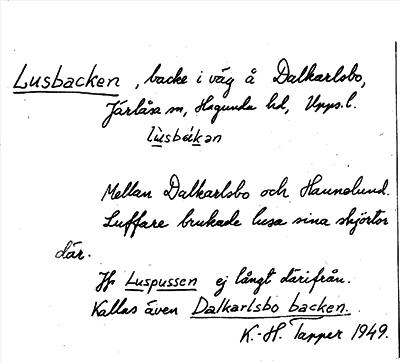 Lusbacken, backe i väg å Dalkarlsbo,
Järlåsa sn, Hagunda hd, Upps.l.
lùsbák̲ən
Mellan Dalkarlsbo och Haunelund.
Luffare brukade lusa sina skjortor
där.
Jfr Luspussen ej långt därifrån.
Kallas även Dalkarlsbo backen.
K.-H. Tapper 1949.